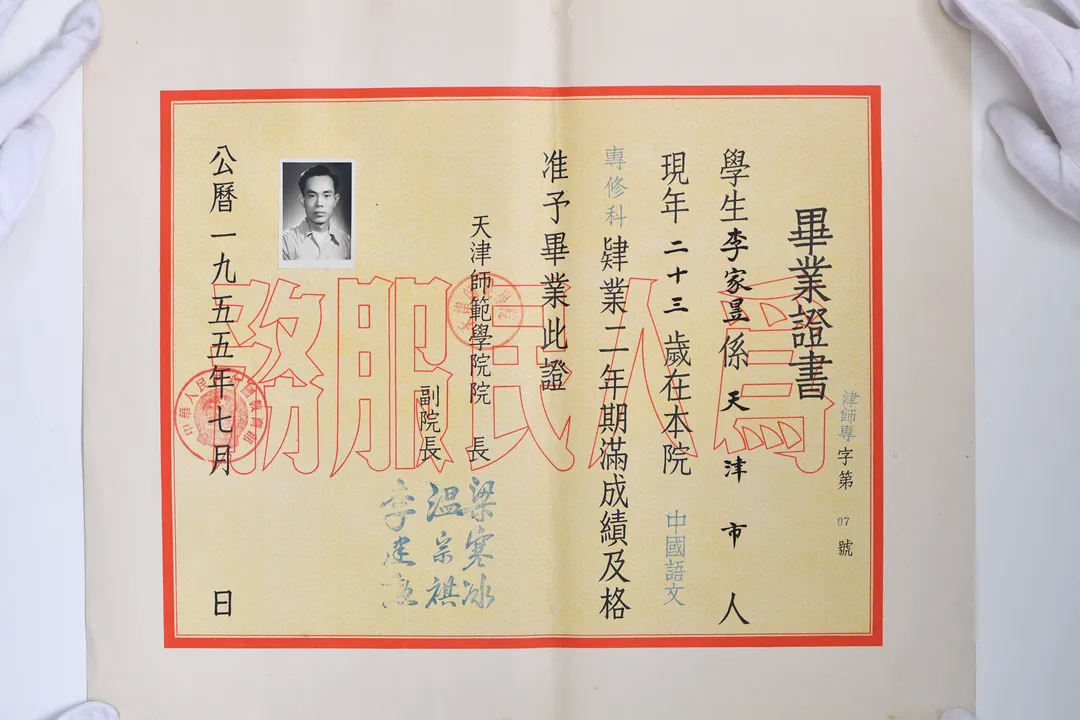 畢業證書
津師專字第07號
學生李家昱係天津市人
現年二十三歲在本院中國語文
專修科肄業二年期滿成績及格
准予畢業此證
天津師範學院院長 梁寒冰
副院長 温宗祺
公曆一九五五年七月 日
為人民服務